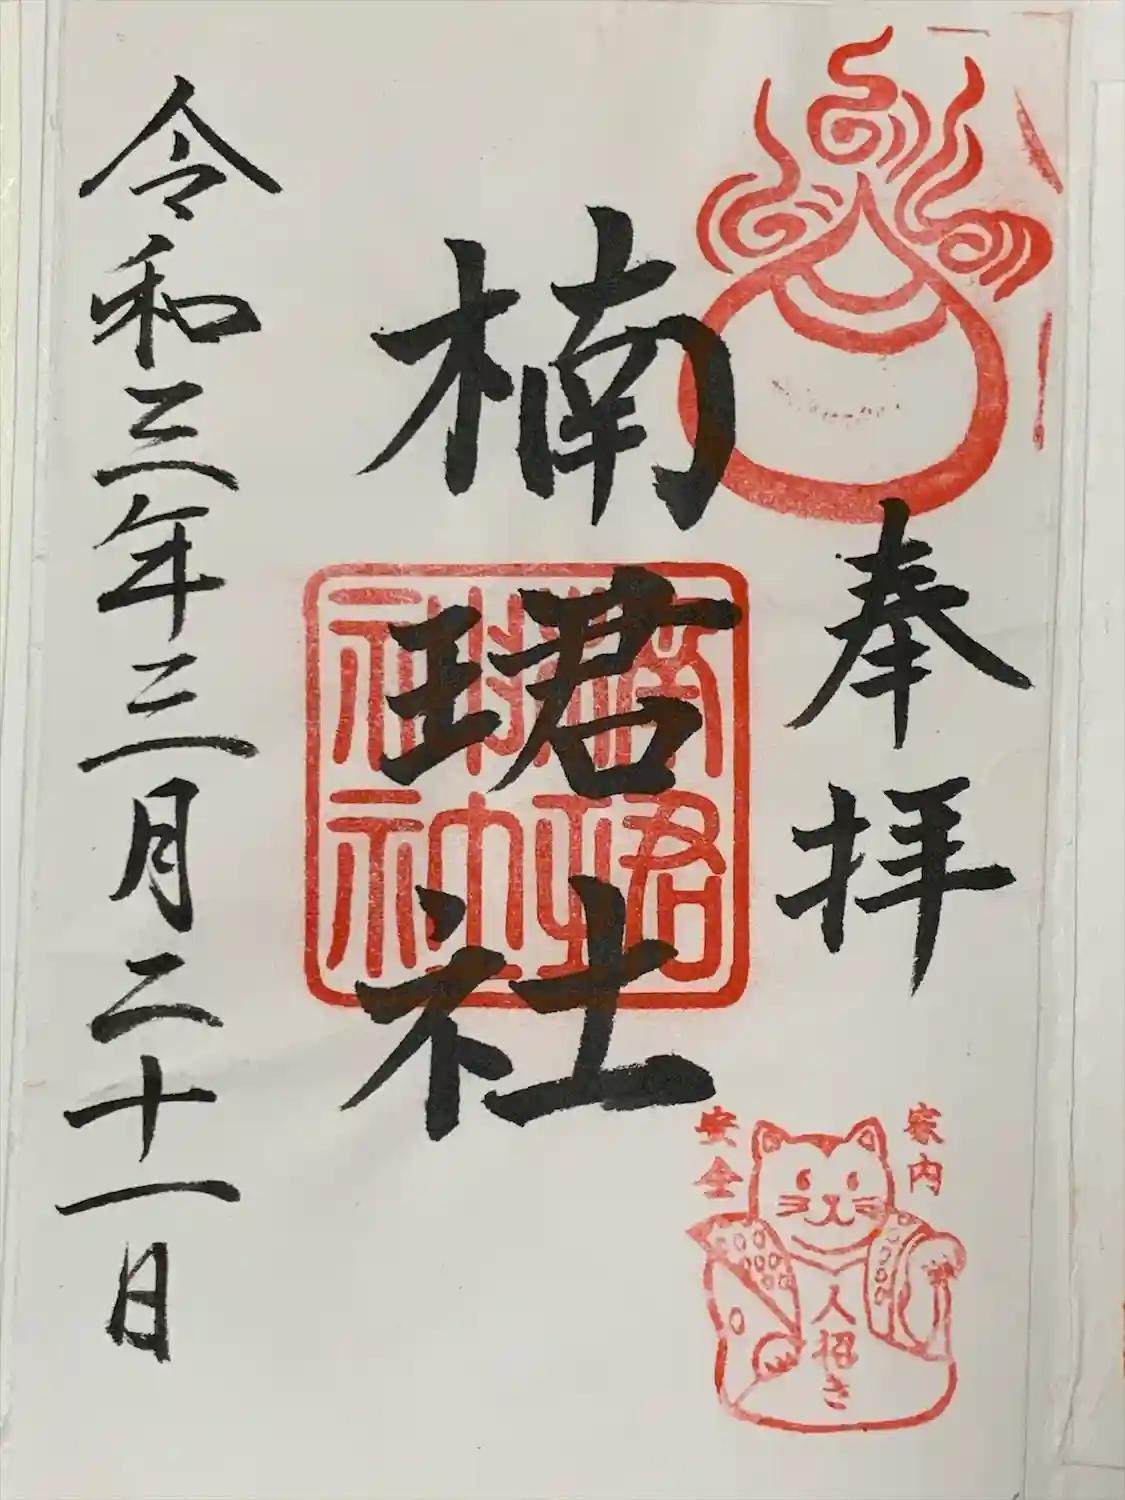 奉拝
楠珺社
楠珺社
令和三年三月二十一日
家内
安全
人招き